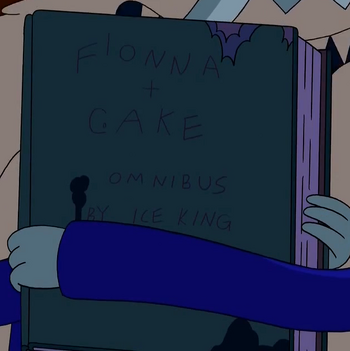 FIONNA
+
CAKE
OMNIBUS
BY ICE KING